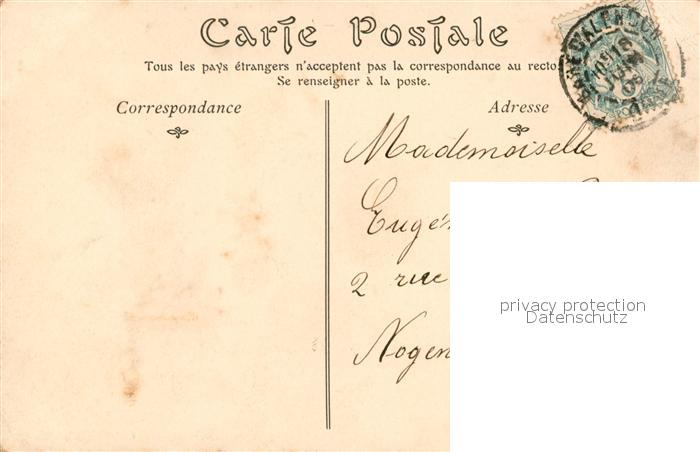 Carte Postale
Tous les pays étrangers n'acceptent pas la correspondance au recto.
Se renseigner à la poste.
Correspondance
Adresse
Mademoiselle
2 rue
privacy protection
Datenschutz